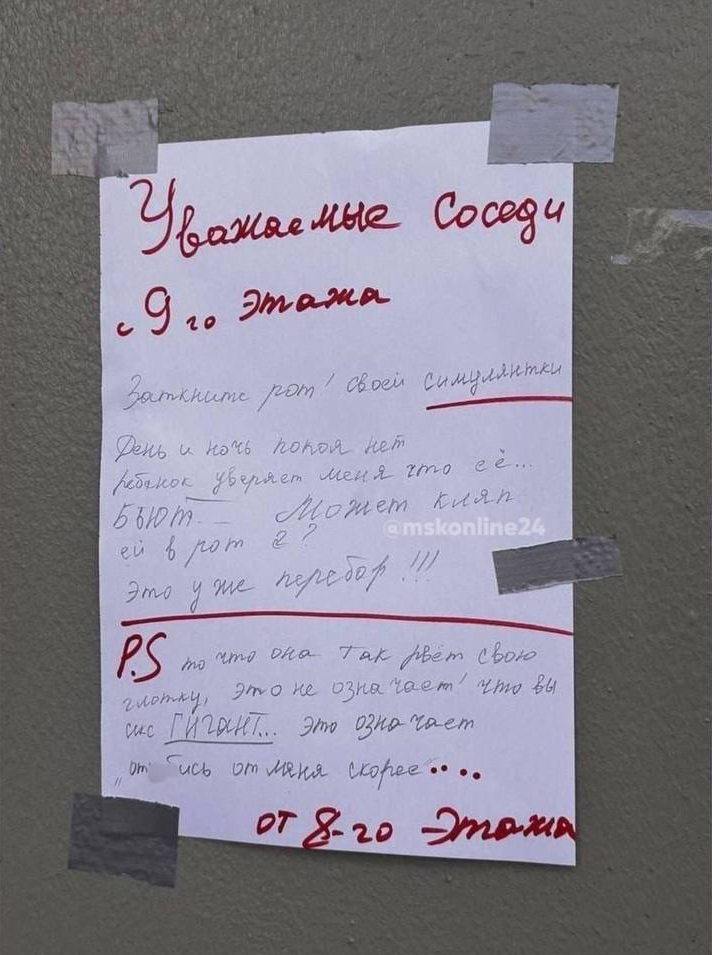 Уважаемые соседи
с 9 го этажа
Заткните рот! своей симулянтки
День и ночь покоя нет
ребёнок уверяет меня что её...
БЬЮТ... Может кляп
ей в рот ?
Это уже перебор!!!
@mskonline24
P.S то что она так рвёт свою
глотку, это не означает! что вы
секс ГИГАНТ... это означает
"от бись от меня скорее"....
от 8-го Этажа